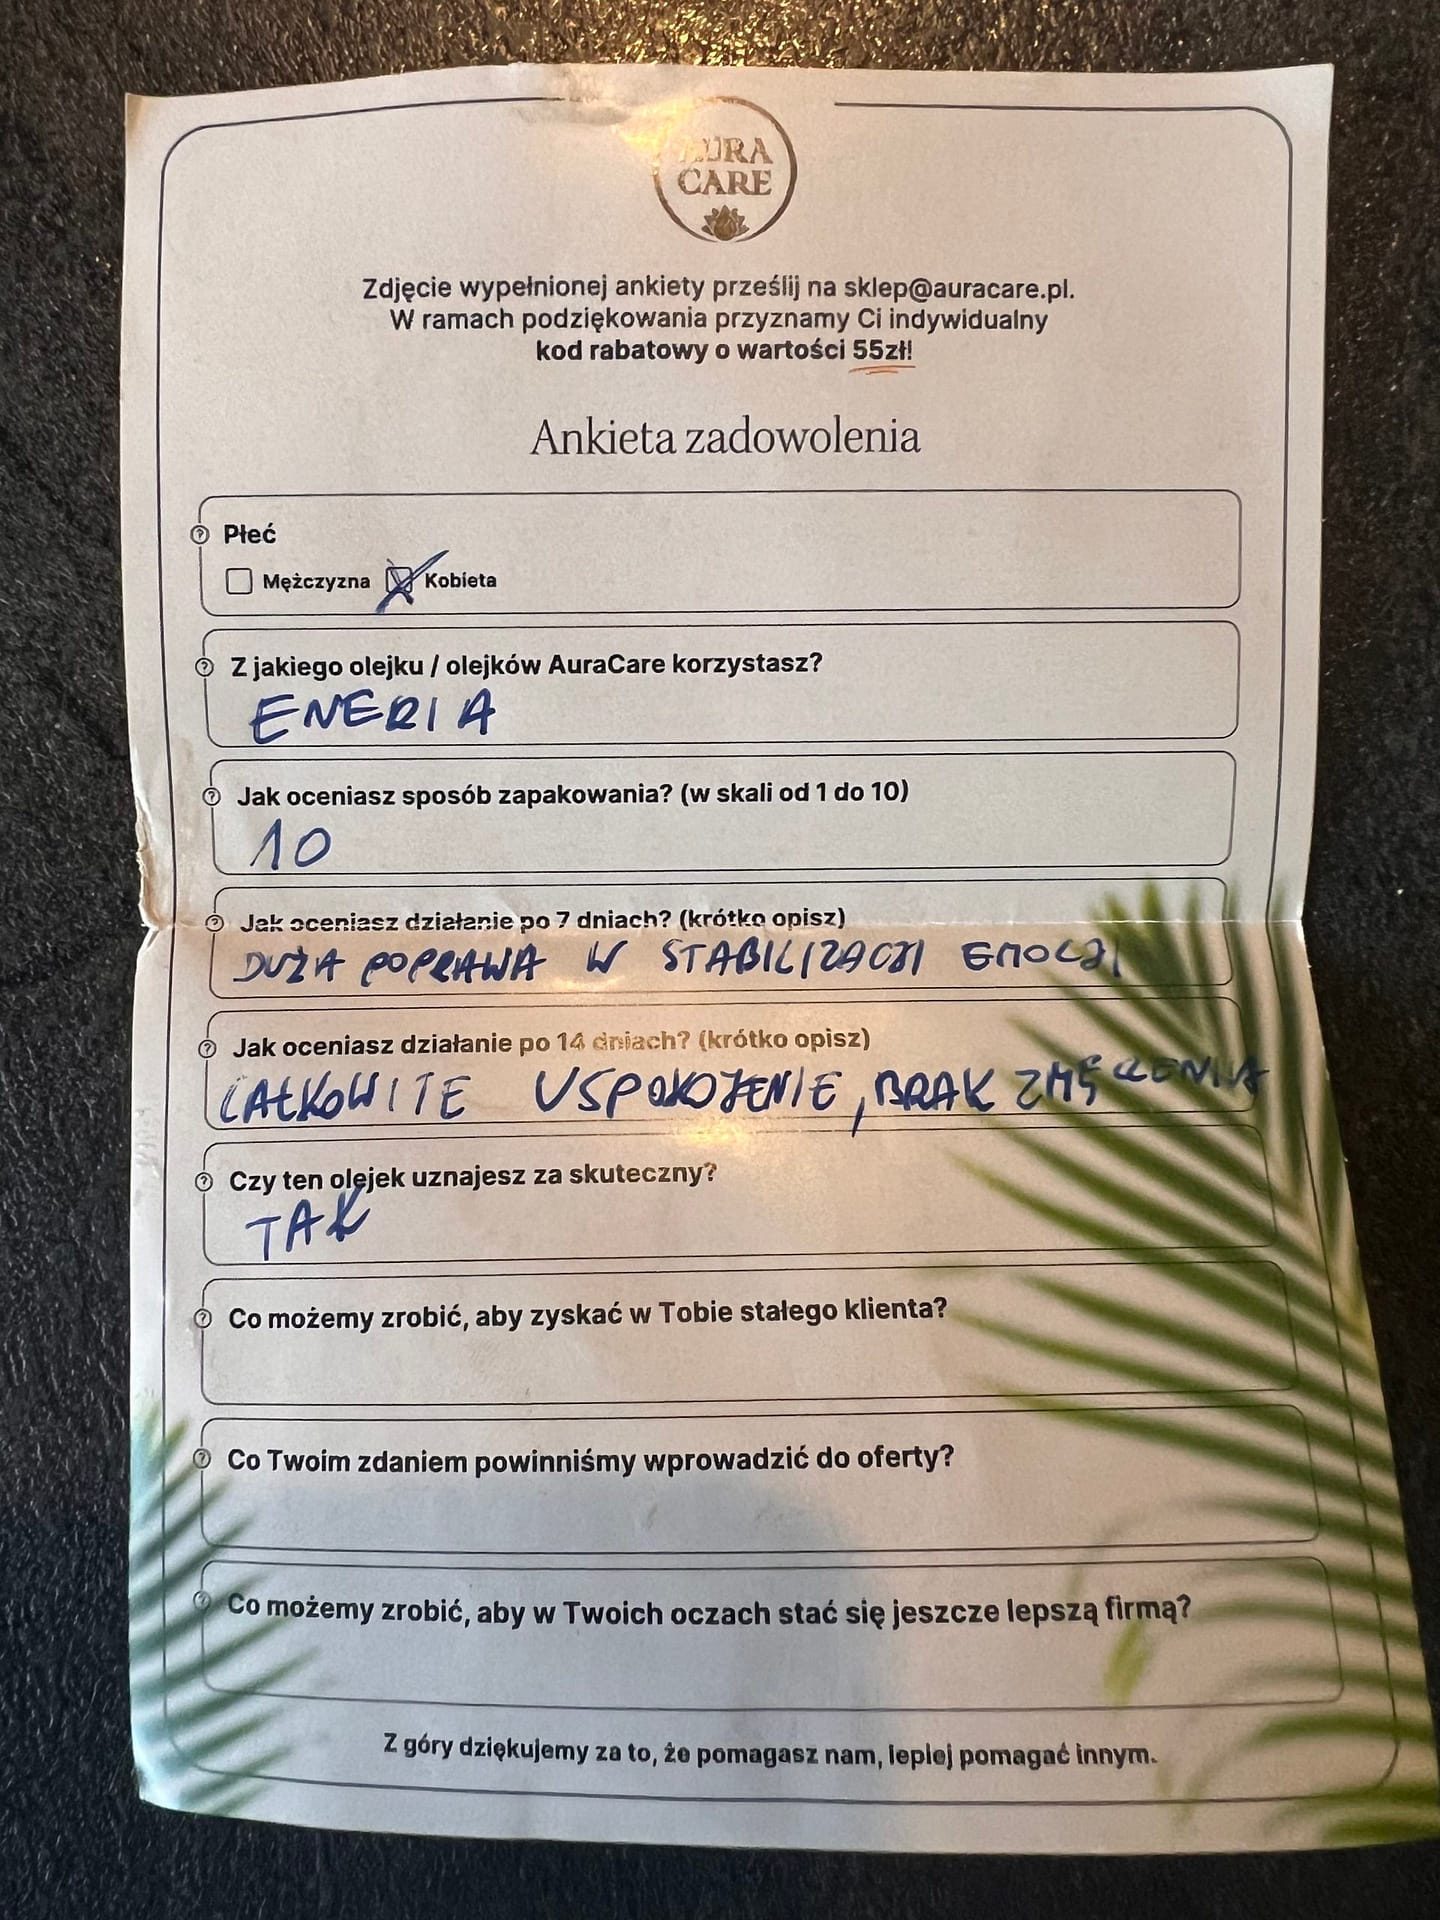 AURA
CARE
Zdjęcie wypełnionej ankiety prześlij na sklep@auracare.pl.
W ramach podziękowania przyznamy Ci indywidualny
kod rabatowy o wartości 55zł!
Ankieta zadowolenia
Płeć
Mężczyzna Kobieta
Z jakiego olejku / olejków AuraCare korzystasz?
ENERIA
Jak oceniasz sposób zapakowania? (w skali od 1 do 10)
10
Jak oceniasz działanie po 7 dniach? (krótko opisz)
DUŻA POPRAWA W STABILIZACJI EMOCJI
Jak oceniasz działanie po 14 dniach? (krótko opisz)
CAŁKOWITE USPOKOJENIE, BRAK ZMĘCZENIA
Czy ten olejek uznajesz za skuteczny?
TAK
Co możemy zrobić, aby zyskać w Tobie stałego klienta?
Co Twoim zdaniem powinniśmy wprowadzić do oferty?
Co możemy zrobić, aby w Twoich oczach stać się jeszcze lepszą firmą?
Z góry dziękujemy za to, że pomagasz nam, lepiej pomagać innym.